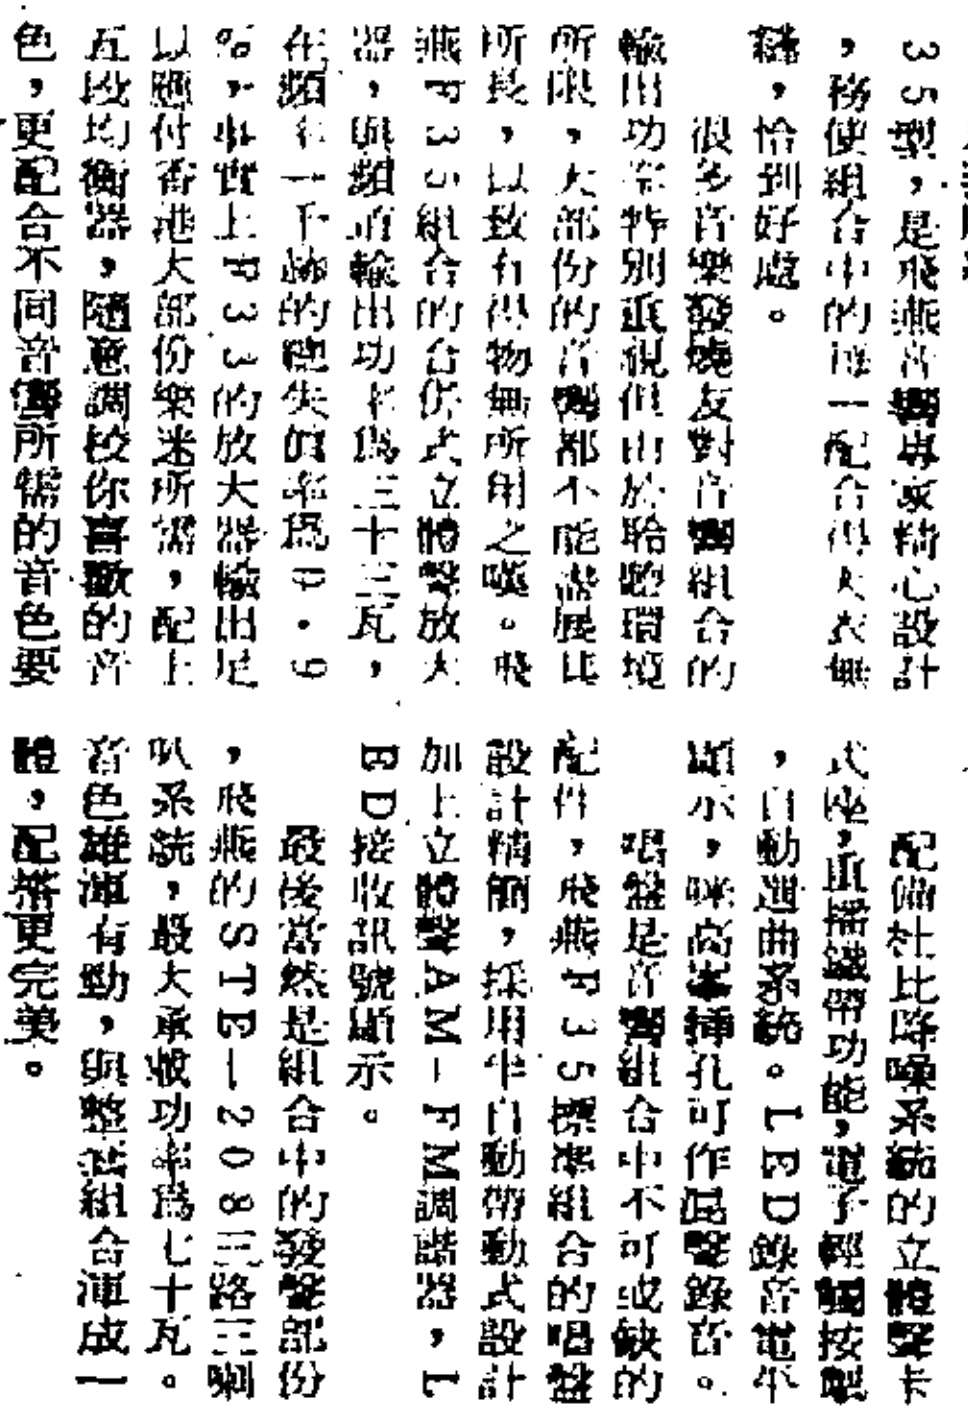 35型，是飛燕音響專家精心設計
，務使組合中的每一配合得天衣無
縫，恰到好處。
很多音樂發燒友對音響組合的
輸出功率特別重視但由於聆聽環境
所限，大部份的音響都不能盡展其
所長，以致有得物無所用之嘆。飛
燕F35組合的合併式立體聲放大
器，與頻道輸出功率爲三十三瓦，
在頻率一千赫的總失真率爲0.9
%，事實上F33的放大器輸出足
以應付香港大部份樂迷所需，配上
五段均衡器，隨意調校你喜歡的音
色，更配合不同音響所需的音色要
配備杜比降噪系統的立體聲卡
式座，重播鐵帶功能，電子輕觸按掣
，自動選曲系統。LED錄音電平
顯示，咪高峯揷孔可作混聲錄音。
唱盤是音響組合中不可或缺的
配件，飛燕F35標準組合的唱盤
設計精簡，採用半自動帶動式設計
加上立體聲AM－FM調諧器，L
ED接收訊號顯示。
最後當然是組合中的發聲部份
，飛燕的STE－208三路三喇
叭系統，最大承收功率爲七十瓦。
音色雄渾有勁，與整套組合渾成一
體，配搭更完美。